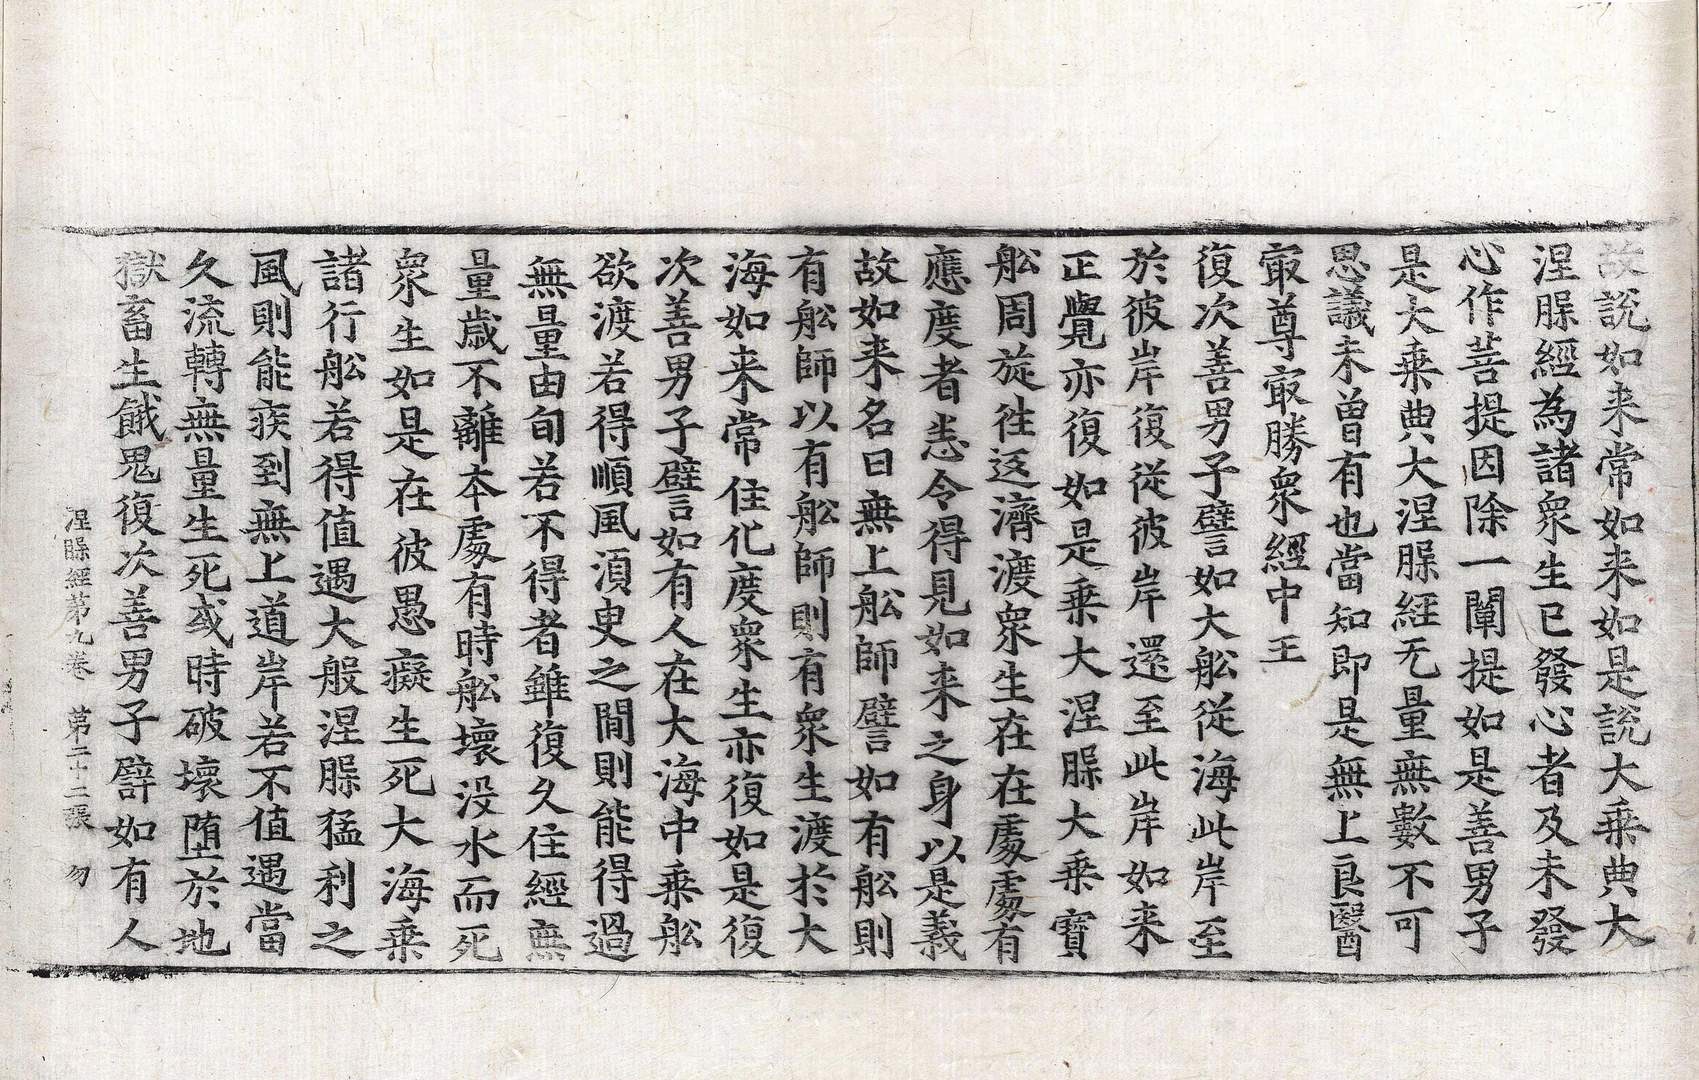 故說如来常如来如是說大乗典大
涅槃經為諸衆生已發心者及未發
心作菩提因除一闡提如是善男子
是大乗典大涅槃經无量無數不可
思議未曽有也當知即是無上良醫
㝡尊㝡勝衆經中王
復次善男子譬如大舩従海此岸至
於彼岸復従彼岸還至此岸如来
正覺亦復如是乗大涅槃大乗寶
舩周旋往返濟渡衆生在在處處有
應度者悉令得見如来之身以是義
故如来名曰無上舩師譬如有舩則
有舩師以有舩師則有衆生渡於大
海如来常住化度衆生亦復如是復
次善男子譬如有人在大海中乗舩
欲渡若得順風湏臾之間則能得過
無量由旬若不得者雖復久住經無
量歲不離本處有時舩壞没水而死
衆生如是在彼愚癡生死大海乗
諸行舩若得值遇大般涅槃猛利之
風則能疾到無上道岸若不值遇當
久流轉無量生死或時破壞堕於地
獄畜生餓鬼復次善男子譬如有人
涅槃經第九卷 第二十二張 勿